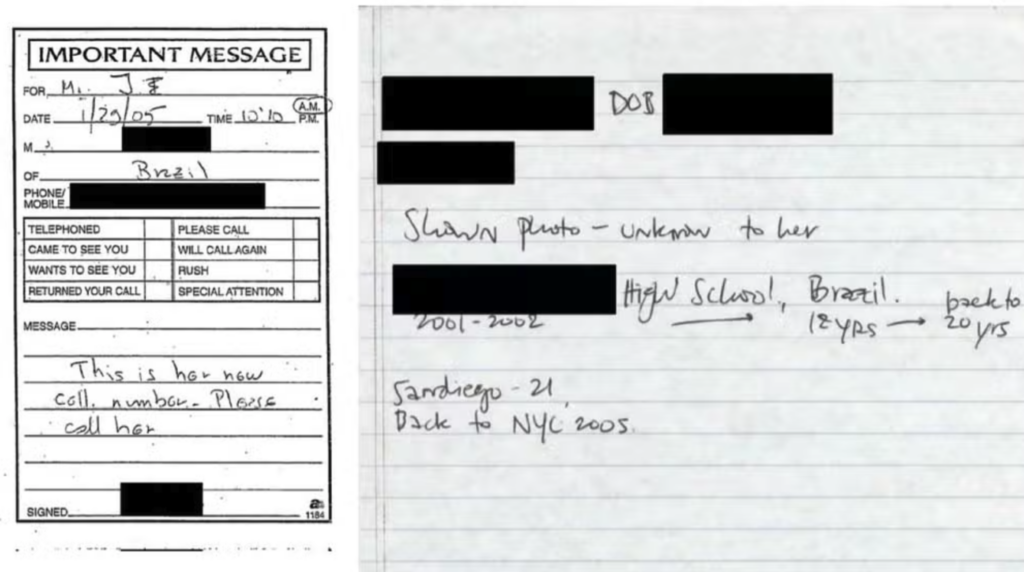 IMPORTANT MESSAGE
FOR Mr. J E
DATE 1/29/05 TIME 10:10 A.M. P.M.
M
OF Brazil
PHONE/
MOBILE
TELEPHONED PLEASE CALL
CAME TO SEE YOU WILL CALL AGAIN
WANTS TO SEE YOU RUSH
RETURNED YOUR CALL SPECIAL ATTENTION
MESSAGE
This is her new
cell. number. Please
call her
SIGNED
1184
DOB
Shown photo - unknown to her
High School, Brazil. back to
2001-2002 → 18 yrs → 20 yrs
Sandiego - 21
Back to NYC 2005.